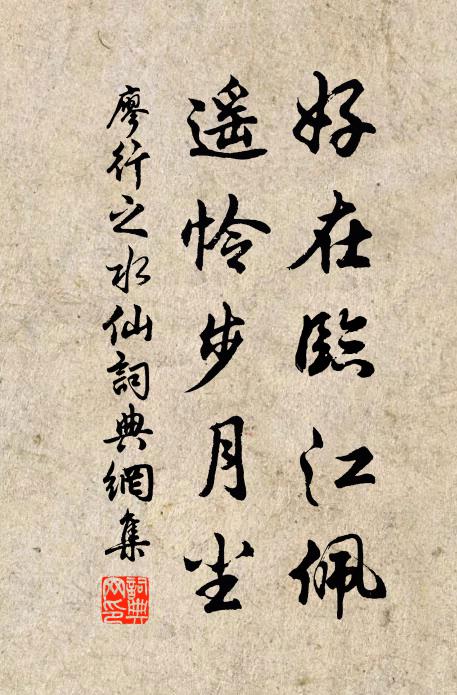 好在臨江佩
遥憐步月尘
廖行之水仙詞典網集
詞典網印